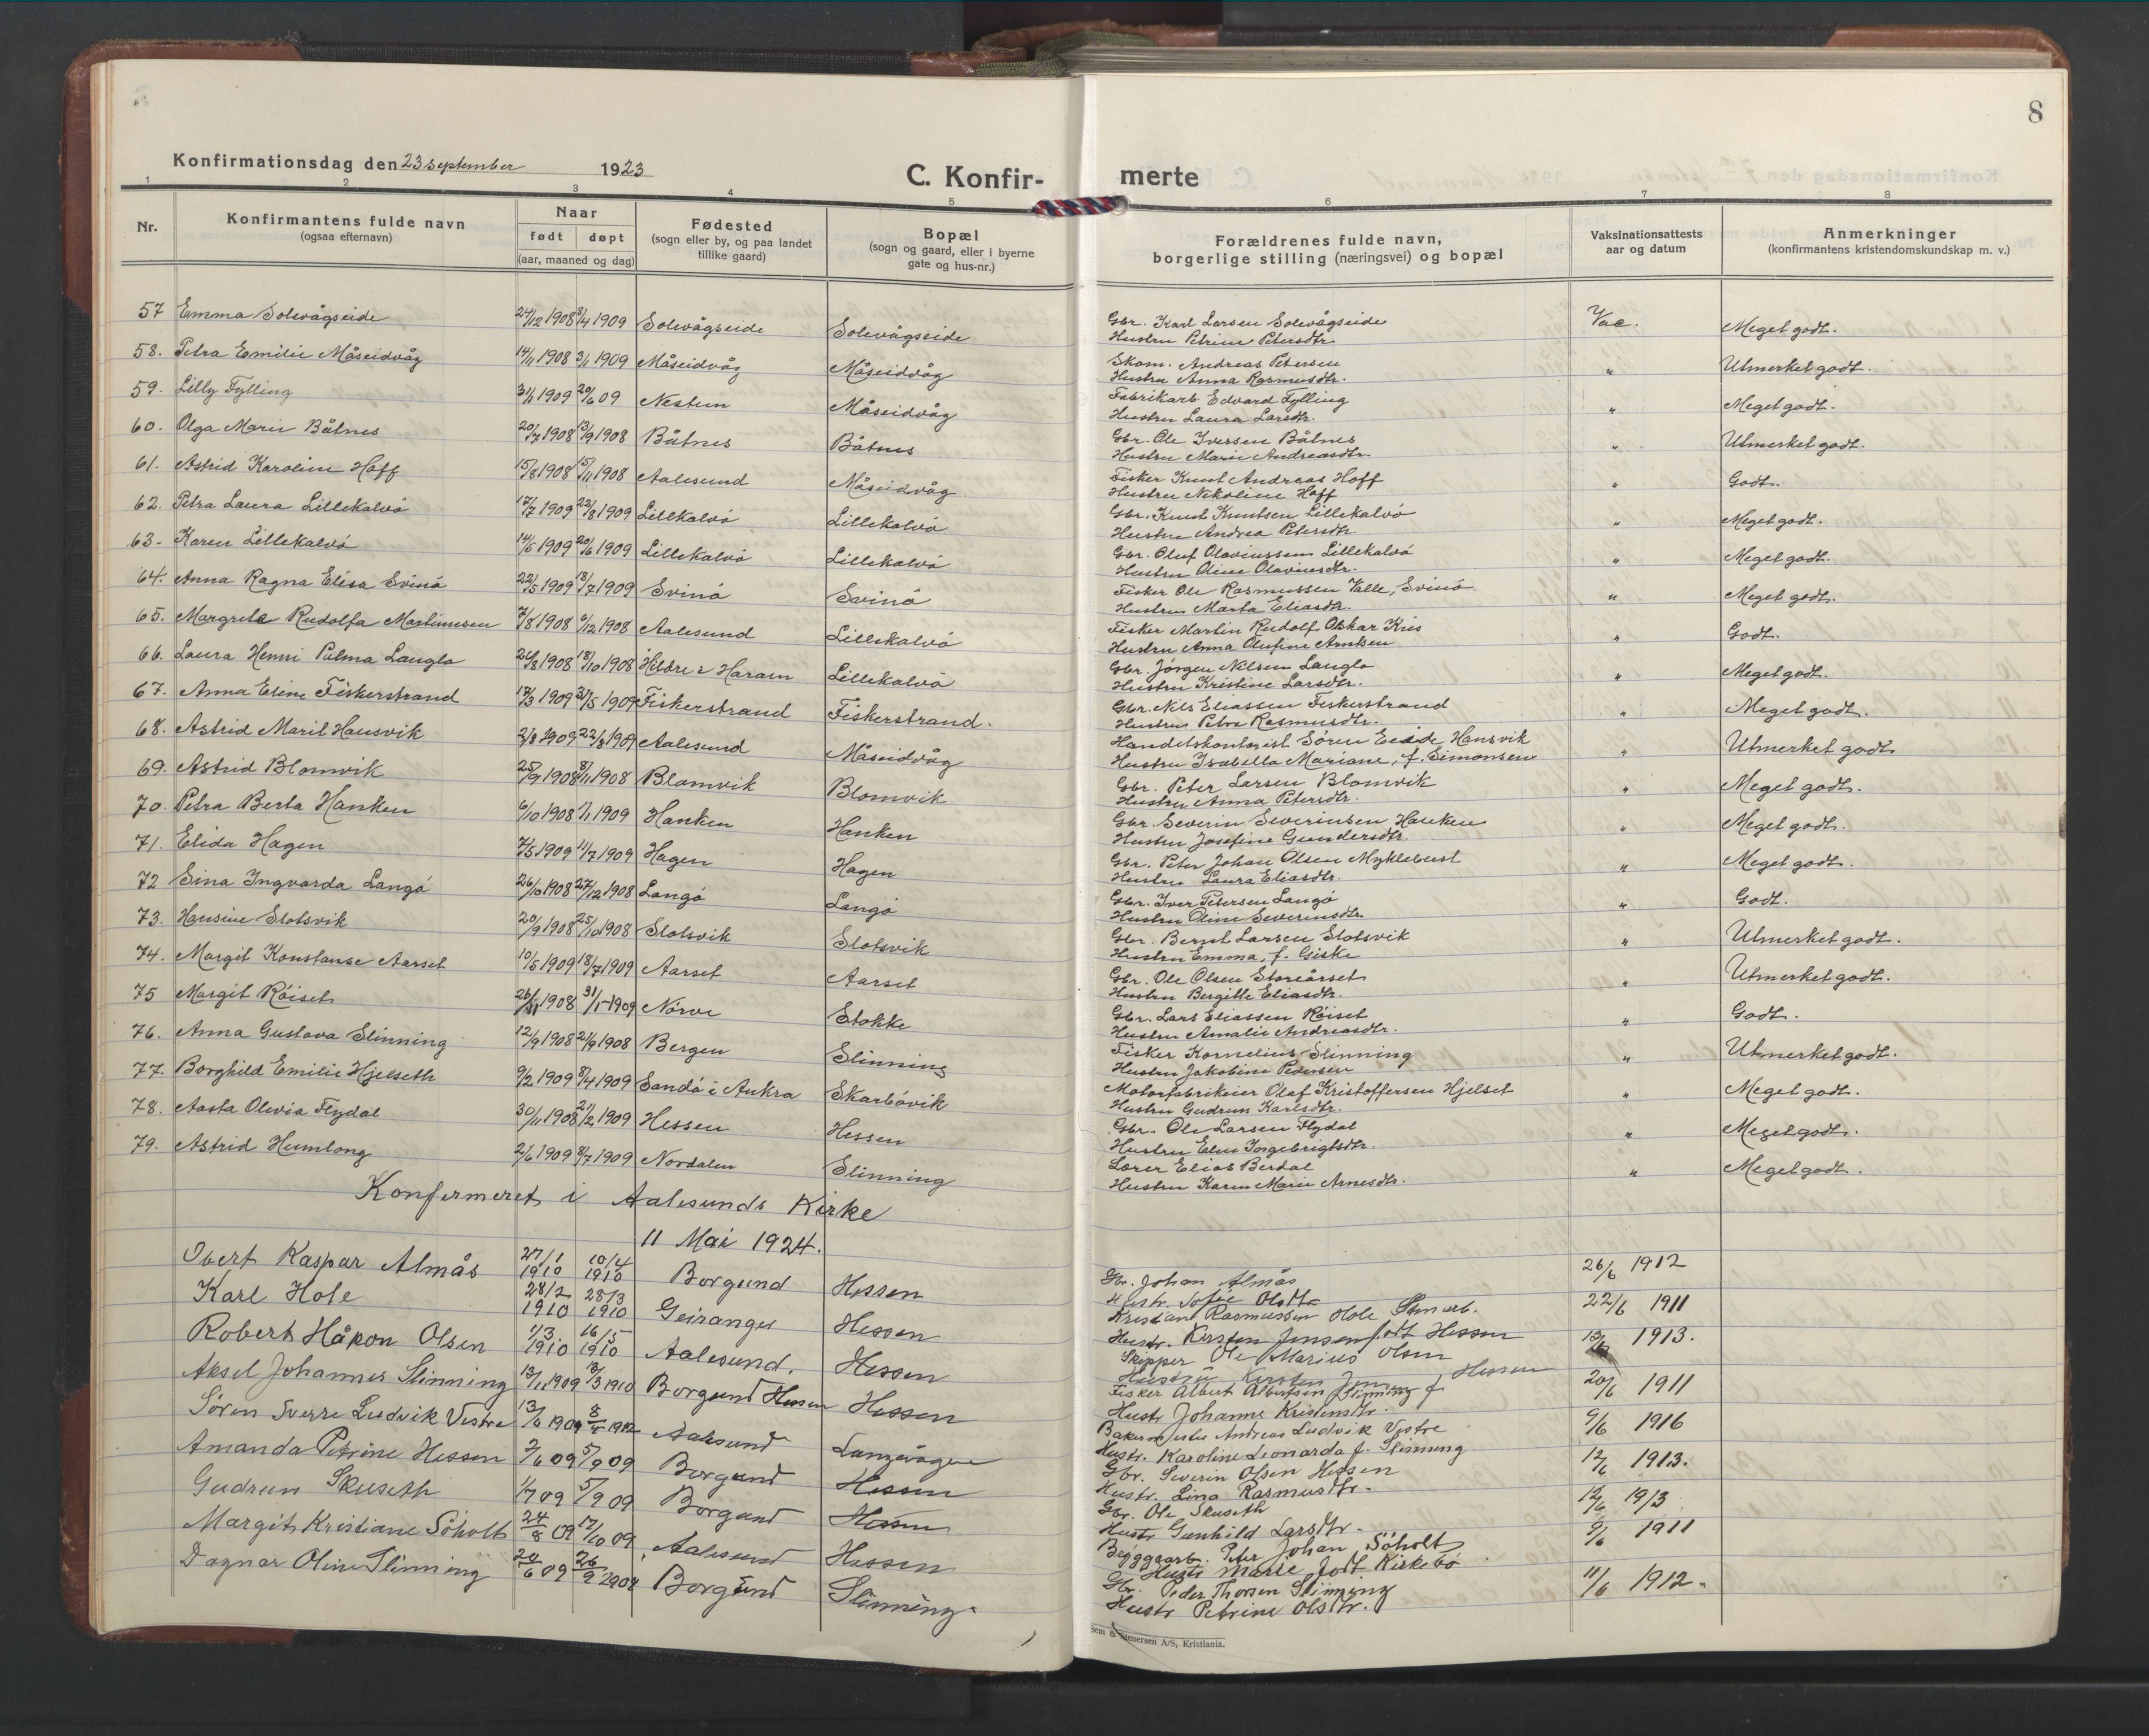 8
Konfirmationsdag den 23 september 1923
C. Konfir- merte
1 2 3 4 5 6 7 8
Nr.
Konfirmantens fulde navn
(ogsaa efternavn)
Naar
født døpt
(aar, maaned og dag)
Fødested
(sogn eller by, og paa landet
tillike gaard)
Bopæl
(sogn og gaard, eller i byerne
gate og hus-nr.)
Forældrenes fulde navn,
borgerlige stilling (næringsvei) og bopæl
Vaksinationsattests
aar og datum
Anmerkninger
(konfirmantens kristendomskundskap m. v.)
57 Emma Solevågseide 24/12 1908 8/4 1909 Solevågseide Solevågseide Gbr. Karl Larsen Solevågseide Vac. Meget godt.
Hustru Petrine Petersdtr.
58. Petra Emilie Måseidvåg 14/11 1908 3/1 1909 Måseidvåg Måseidvåg Skom. Andreas Petersen " Utmerket godt.
Hustru Anna Rasmusdtr.
59. Lilly Fylling 3/1 1909 20/6 09 Nestun Måseidvåg Fabrikarb. Edvard Fylling " Meget godt.
Hustru Laura Larsdtr.
60. Olga Marie Båtnes 20/7 1908 13/9 1908 Båtnes Båtnes Gbr. Ole Iversen Båtnes " Utmerket godt.
Hustru Marie Andreasdtr.
61. Astrid Karoline Hoff 15/8 1908 15/11 1908 Aalesund Måseidvåg Fisker Knut Andreas Hoff " Godt.
Hustru Nikoline Hoff
62. Petra Laura Lillekalvö 17/7 1909 22/8 1909 Lillekalvö Lillekalvö Gbr. Knut Knutsen Lillekalvö " Meget godt.
Hustru Andrea Petersdtr.
63. Karen Lillekalvö 14/5 1909 20/6 1909 Lillekalvö Lillekalvö Gbr. Oluf Olaviussen Lillekalvö " Meget godt.
Hustru Oline Olaviusdtr.
64. Anna Ragna Elisa Svinö 22/5 1909 18/7 1909 Svinö Svinö Fisker Ole Rasmussen Valle, Svinö " Meget godt.
Hustru Marta Eliasdtr.
65. Margrete Rudolfa Martinusen 7/8 1908 6/12 1908 Aalesund Lillekalvö Fisker Martin Rudolf Oskar Kris " Godt.
Hustru Anna Olufine Arntsen
66. Laura Henni Palma Langlo 24/8 1908 18/10 1908 Hildre i Haram Lillekalvö Gbr. Jörgen Nilsen Langlo " Meget godt.
Hustru Kristine Larsdtr.
67. Anna Eline Fiskerstrand 17/3 1909 31/5 1909 Fiskerstrand Fiskerstrand. Gbr. Nils Eliassen Fiskerstrand " Meget godt.
Hustru Petra Rasmusdtr.
68. Astrid Marit Hansvik 2/8 1909 22/8 1909 Aalesund Måseidvåg Handelskontorist Sören Eeide Hansvik " Utmerket godt
Hustru Isabella Mariane, f. Simonsen
69. Astrid Blomvik 25/9 1908 8/11 1908 Blomvik Blomvik Gbr. Peter Larsen Blomvik " Meget godt.
Hustru Anna Petersdtr.
70. Petra Berta Hanken 6/10 1908 1/1 1909 Hanken Hanken Gbr. Severin Severinsen Hanken " Meget godt.
Hustru Josefine Gundersdtr.
71. Elida Hagen 7/5 1909 11/7 1909 Hagen Hagen Gbr. Peter Johan Olsen Myklebust " Meget godt.
Hustru Laura Eliasdtr.
72 Sina Ingvarda Langö 26/10 1908 27/12 1908 Langö Langö Gbr. Iver Petersen Langö " Godt.
Hustru Oline Severinsdtr.
73. Hansine Slotsvik 20/9 1908 25/10 1908 Slotsvik Slotsvik Gbr. Bernt Larsen Slotsvik " Utmerket godt.
Hustru Emma, f. Giske
74. Margit Konstanse Aarset 10/5 1909 18/7 1909 Aarset Aarset Gbr. Ole Olsen Storeårset " Utmerket godt.
Hustru Bergitte Eliasdtr.
75 Margit Röiset 26/11 1908 31/1 1909 Nörve Stokke Gbr. Lars Eliassen Röiset " Godt.
Hustru Amalie Andreasdtr.
76. Anna Gustava Slinning 12/9 1908 21/9 1908 Bergen Slinning Fisker Kornelius Slinning " Utmerket godt.
Hustru Jakobine Pedersen
77. Borghild Emilie Hjelseth 9/2 1909 8/4 1909 Sandö i Aukra Skarbövik Motorfabrikeier Olaf Kristoffersen Hjelset " Meget godt.
Hustru Gudrun Karlsdtr.
78. Aasta Olivia Flydal 30/11 1908 21/2 1909 Hessen Hessen Gbr. Ole Larsen Flydal " Meget godt.
Hustru Elen Ingebrigtsdtr.
79. Astrid Humlong 2/6 1909 8/7 1909 Nordalen Slinning Lærer Elias Berdal " Meget godt.
Hustru Karen Marie Arnesdtr.
Konfermeret i Aalesunds Kirke
11 Mai 1924.
Obert Kaspar Almås 27/1 1910 10/4 1910 Borgund Hessen Gbr. Johan Almås 26/6 1912
Hustr. Sofie Olsdtr
Karl Hole 28/2 1910 28/3 1910 Geiranger Hessen Kristian Rasmussen Hole 22/6 1911
Hustr. Kirsten Jensen født Hessen
Robert Håkon Olsen 1/3 1910 16/5 1910 Aalesund. Hessen Skipper Ole Marius Olsen 1913.
Hustru Kirsten Hessen
Aksel Johannes Slinning 13/11 1909 13/3 1910 Borgund Hessen Hessen Fisker Albert Albertsen Slinning 20/6 1911
Hustr Johanne Kristensdtr.
Sören Sverre Ludvik Vestre 13/6 1909 Aalesund Langevågen Bakermester Andreas Ludvik Vestre 9/6 1916
Hustr. Karoline Leonarda f. Slinning
Amanda Petrine Hessen 2/6 09 5/9 09 Borgund Hessen Gbr. Severin Olsen Hessen 12/6 1913.
Hustr. Lina Rasmusdtr.
Gudrun Skuseth 1/7 09 5/9 09 Borgund Hessen Gbr. Ole Skuseth 12/6 1913
Hustr Gunhild Larsdtr.
Margit Kristiane Söholt 24/8 09 17/10 09 Aalesund Hessen Byggarb. Peter Johan Söholt 9/6 1911
Hustr Marie født Kirkebö
Dagnar Oline Slinning 20/6 09 26/9 1909 Borgund Slinning. Gbr. Peder Thorsen Slinning 11/6 1912.
Hustr Petrine Olsdtr.
Sem & Stenersen A/S, Kristiania.